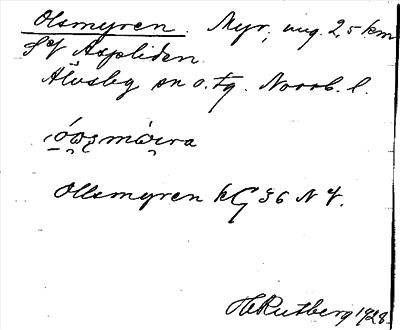 Olsmyren. Myr, ung. 2,5 km
S of Aspliden.
Älvsby sn o. tg. Norrb. l.
Ollsmyren kG 36 NV.
H Rutberg 1928.